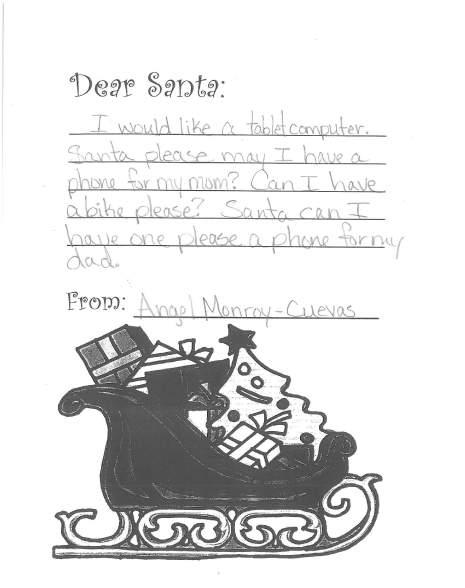 Dear Santa:
I would like a tablet computer.
Santa please may I have a
phone for my mom? Can I have
a bike please? Santa can I
have one please a phone for my
dad.
From: Angel Monroy-Cuevas